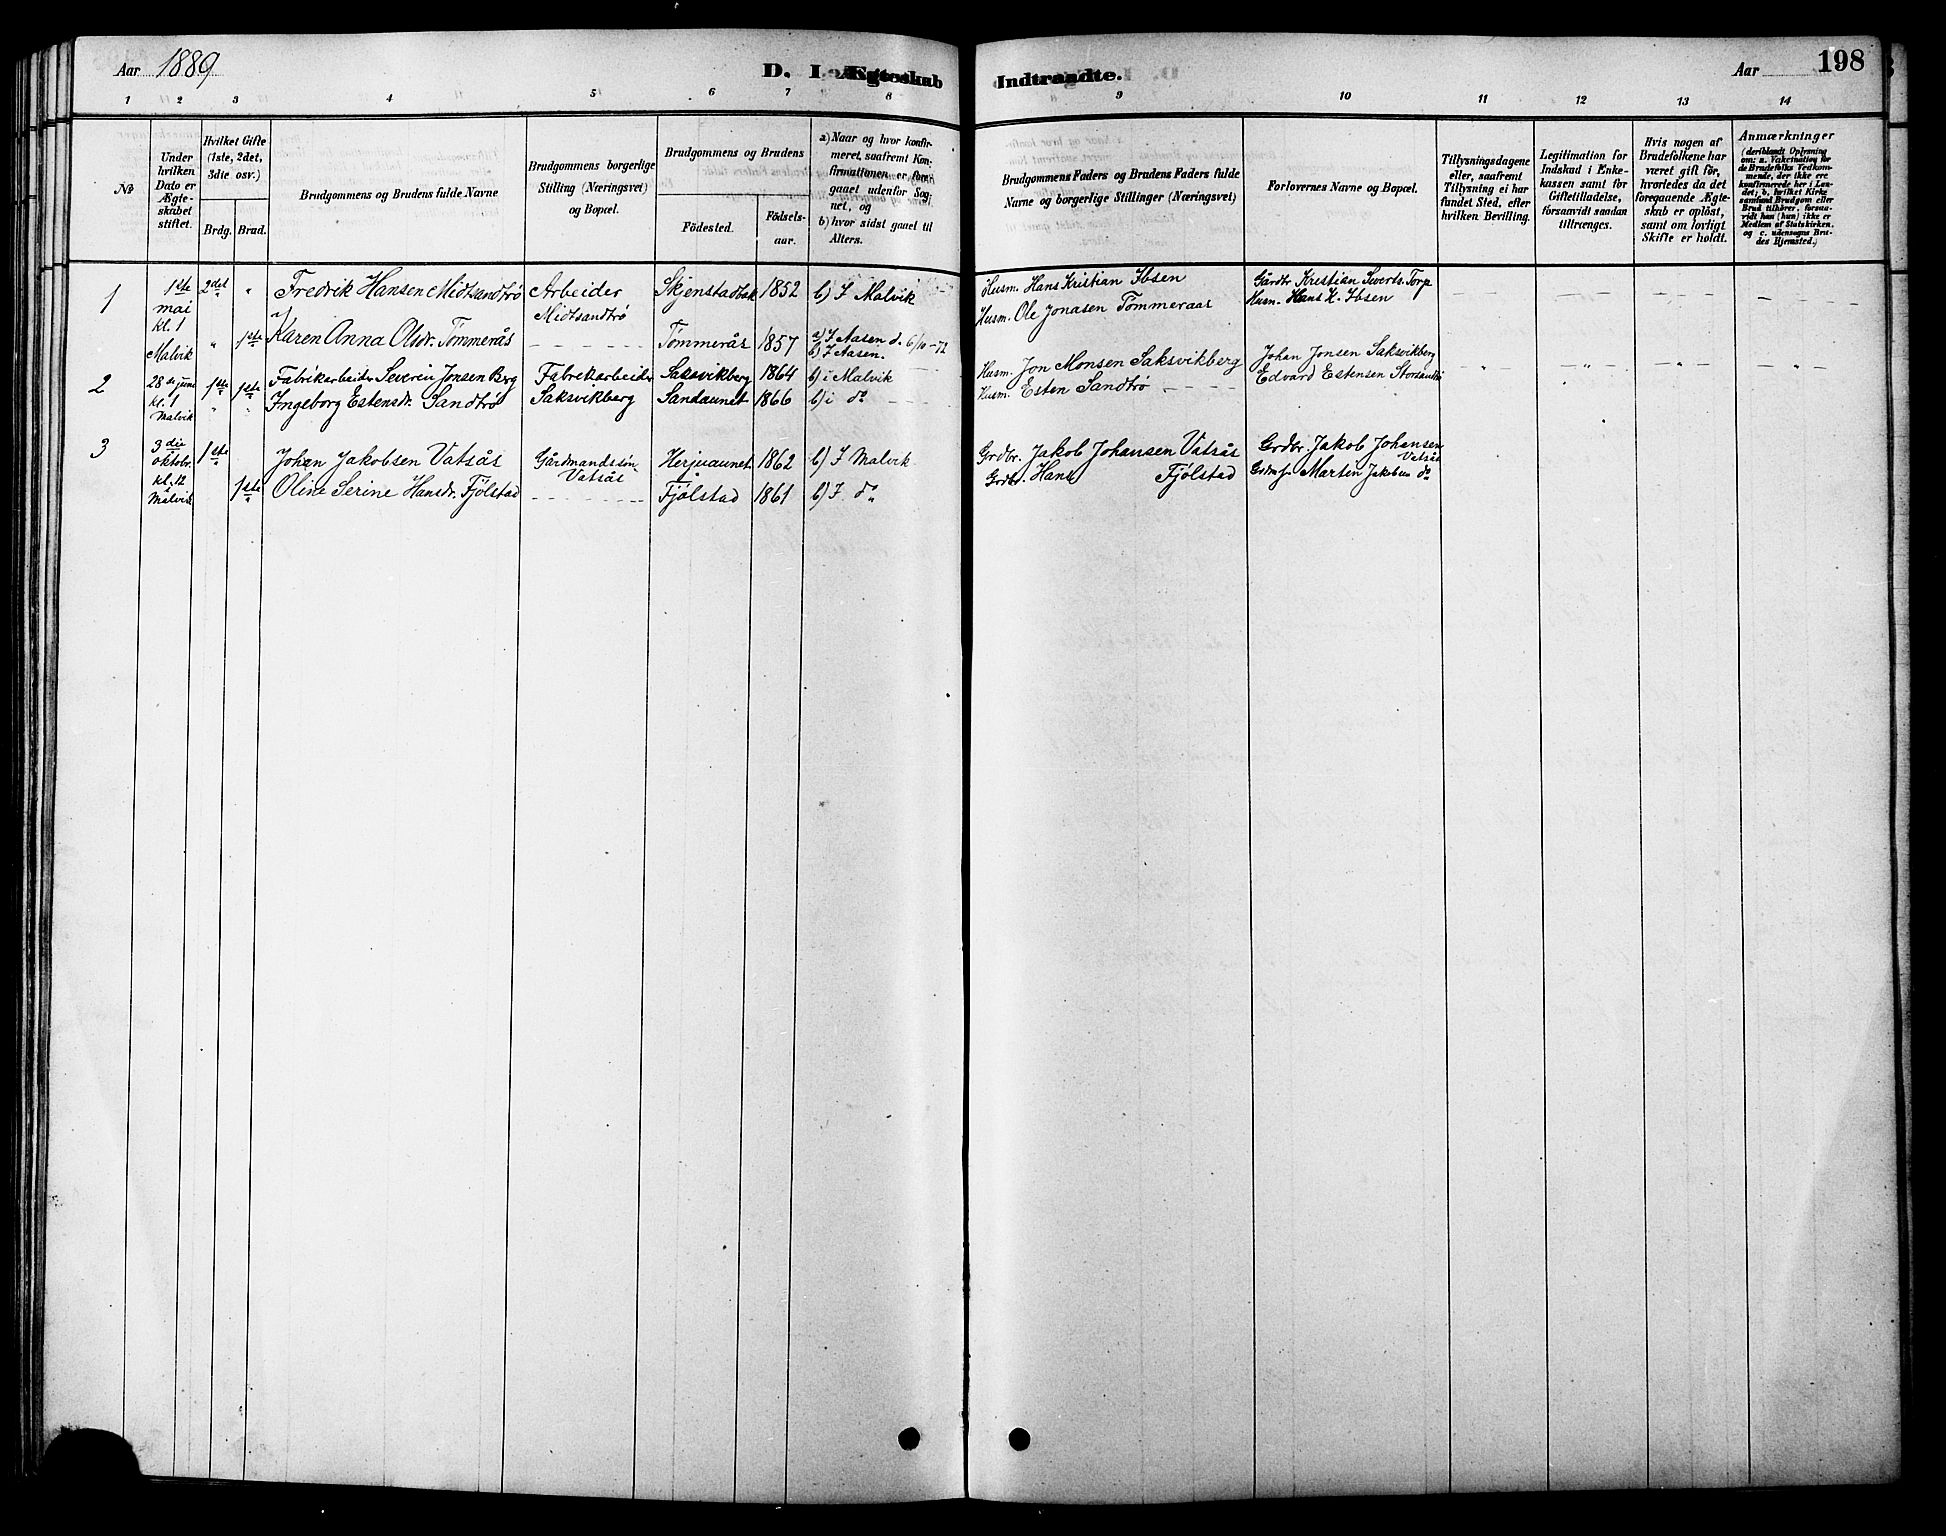 Aar 1889
D. I Ægteskab Indtraadte.
Aar 198
1 2 3 4 5 6 7 8 9 10 11 12 13 14
No
Under hvilken Dato er Ægteskabet stiftet.
Hvilket Gifte (1ste, 2det, 3die osv.)
Brdg. Brud.
Brudgommens og Brudens fulde Navne
Brudgommens borgerlige Stilling (Næringsvei) og Bopæl.
Brudgommens og Brudens
Födested. Födselsaar.
a) Naar og hvor konfirmeret, saafremt Konfirmationen er foregaaet udenfor Sognet, og
b) hvor sidst gaaet til Alters.
Brudgommens Faders og Brudens Faders fulde Navne og borgerlige Stillinger (Næringsvei)
Forlovernes Navne og Bopæl.
Tillysningsdagene eller, saafremt Tillysning ei har fundet Sted, efter hvilken Bevilling.
Legitimation for Indskud i Enkekassen samt for Giftetilladelse, forsaavidt saadan tiltrænges.
Hvis nogen af Brudefolkene har været gift før, hvorledes da det foregaaende Ægteskab er oplöst, samt om lovligt Skifte er holdt.
Anmærkninger (deriblandt Oplysning om: a. Vakcination for de Brudefolks Vedkommende, der ikke ere konfirmerede her i Landet; b. hvilket Kirkesamfund Brudgom eller Brud tilhörer, forsaavidt han (hun) ikke er Medlem af Statskirken. og c. udensogns Brudes Hjemsted.)
1 1ste mai kl. 1 Malvik 2det " Fredrik Hansen Midtsandtrö Arbeider Midtsandtrø Skjenstadbak 1852 b) I Malvik Husm. Hans Kristian Ibsen Gårdbr Kristian Severts. Torp
" 1ste Karen Anna Olsdr. Tömmerås Tømmerås 1857 a) I Aasen d. 6/10-72 b) I Aasen. Husm. Ole Jonasen Tömmeraas Husm. Hans K. Ibsen
2 28de juni kl. 1 Malvik 1ste 1ste Fabrikarbeider Severin Jonsen Berg Fabrikarbeider Saksvikberg Saksvikberg 1864 b) i Malvik Husm. Jon Monsen Saksvikberg Johan Jonsen Saksvikberg
" " Ingeborg Estensdr. Sandtrø Sandaunet 1866 b) i do Husm. Esten Sandtrø Edvard Estensen
3 3die oktobr. kl. 12 Malvik 1ste Johan Jakobsen Vatsås Gårdmandssön Vatsås Herjuaunet 1862 b) I Malvik Grdbr. Jakob Johansen Vatsås Grdbr Jakob Johansen Vatsås
1ste Oline Serine Hansdr. Fjölstad Fjölstad 1861 b) I. do Grdbr. Hans Fjölstad Martin Jakobsen do